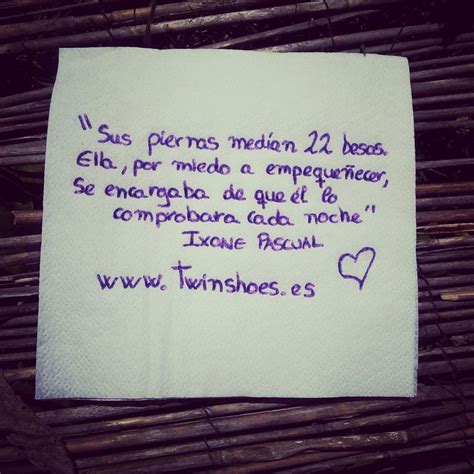 "Sus piernas medían 22 besos.
Ella, por miedo a empequeñecer,
Se encargaba de que él lo
comprobara cada noche"
IXONE PASCUAL
www.Twinshoes.es